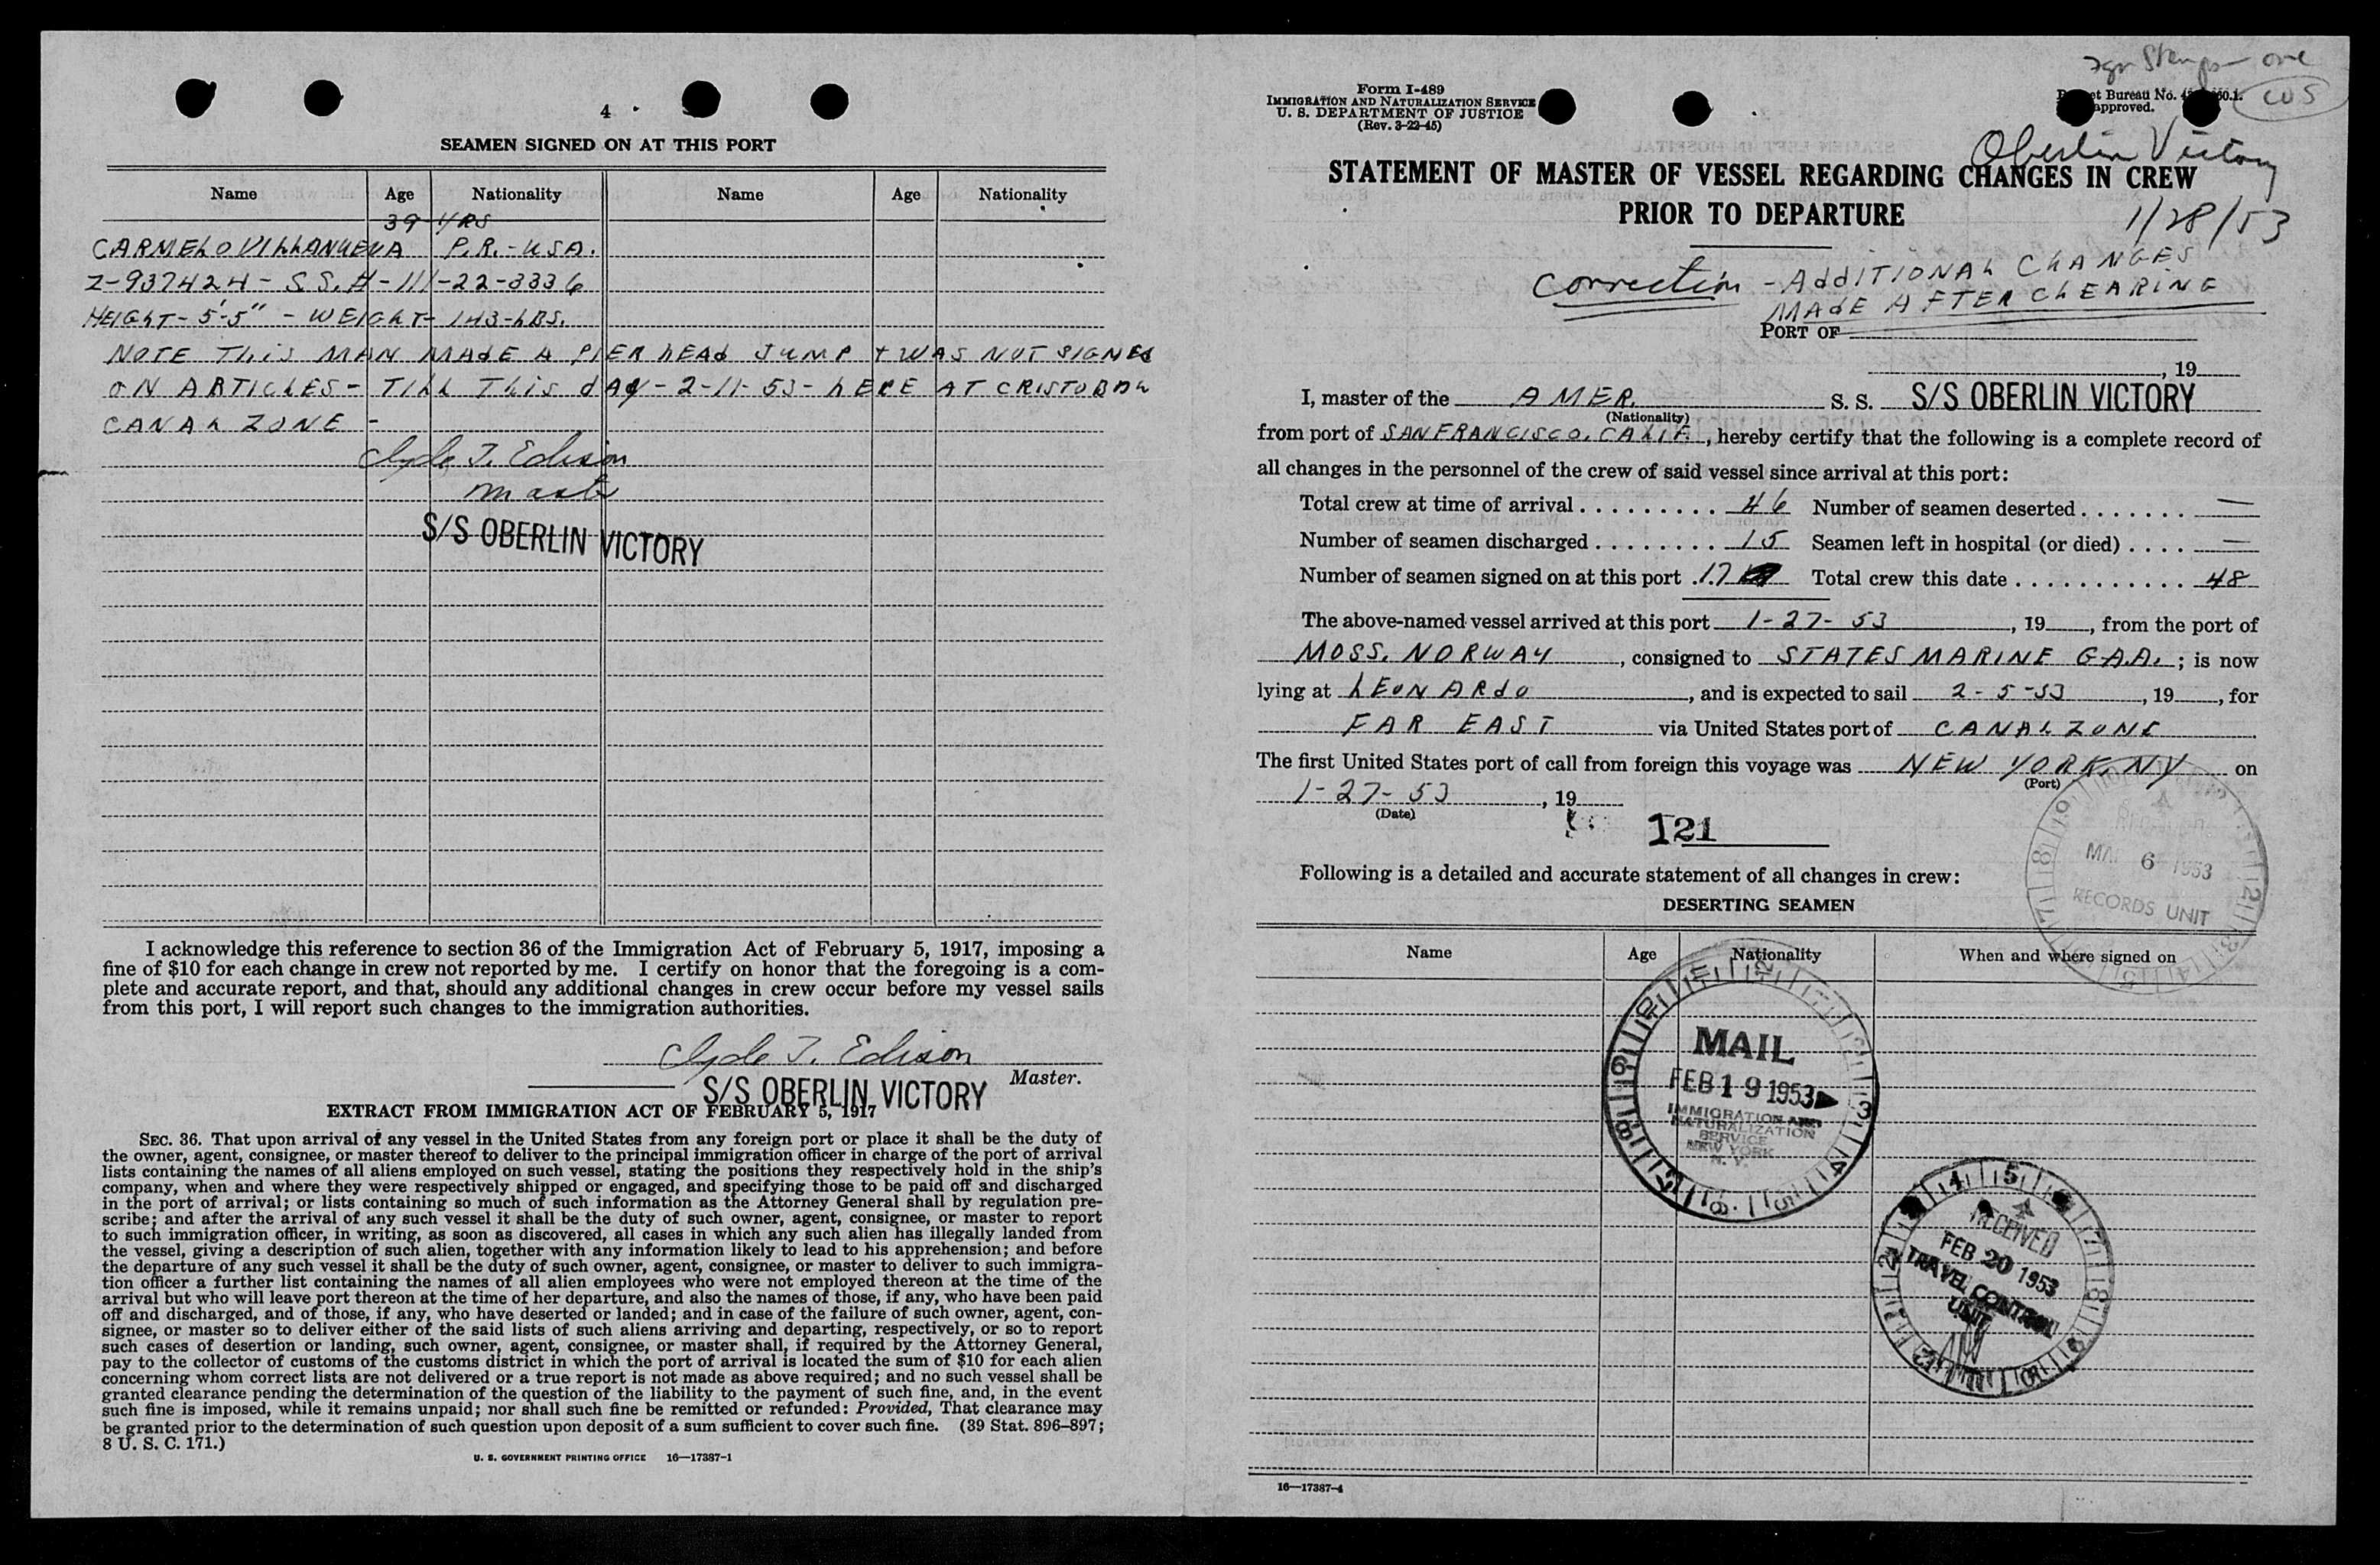 4
SEAMEN SIGNED ON AT THIS PORT
Name Age Nationality Name Age Nationality
39 YRS
CARMELO VILLANUEVA P.R.-USA.
Z-937424- S.S.#-111-22-3336
HEIGHT- 5'-5" - WEIGHT- 143-LBS.
NOTE THIS MAN MADE A PIER HEAD JUMP + WAS NOT SIGNED
ON ARTICLES- TILL THIS DAY- 2-11-53- HERE AT CRISTOBAL
CANAL ZONE -
Clyde T. Edison
Master
S/S OBERLIN VICTORY
I acknowledge this reference to section 36 of the Immigration Act of February 5, 1917, imposing a
fine of $10 for each change in crew not reported by me. I certify on honor that the foregoing is a com-
plete and accurate report, and that, should any additional changes in crew occur before my vessel sails
from this port, I will report such changes to the immigration authorities.
Clyde T. Edison
Master.
S/S OBERLIN VICTORY
EXTRACT FROM IMMIGRATION ACT OF FEBRUARY 5, 1917
SEC. 36. That upon arrival of any vessel in the United States from any foreign port or place it shall be the duty of
the owner, agent, consignee, or master thereof to deliver to the principal immigration officer in charge of the port of arrival
lists containing the names of all aliens employed on such vessel, stating the positions they respectively hold in the ship's
company, when and where they were respectively shipped or engaged, and specifying those to be paid off and discharged
in the port of arrival; or lists containing so much of such information as the Attorney General shall by regulation pre-
scribe; and after the arrival of any such vessel it shall be the duty of such owner, agent, consignee, or master to report
to such immigration officer, in writing, as soon as discovered, all cases in which any such alien has illegally landed from
the vessel, giving a description of such alien, together with any information likely to lead to his apprehension; and before
the departure of any such vessel it shall be the duty of such owner, agent, consignee, or master to deliver to such immigra-
tion officer a further list containing the names of all alien employees who were not employed thereon at the time of the
arrival but who will leave port thereon at the time of her departure, and also the names of those, if any, who have been paid
off and discharged, and of those, if any, who have deserted or landed; and in case of the failure of such owner, agent, con-
signee, or master so to deliver either of the said lists of such aliens arriving and departing, respectively, or so to report
such cases of desertion or landing, such owner, agent, consignee, or master shall, if required by the Attorney General,
pay to the collector of customs of the customs district in which the port of arrival is located the sum of $10 for each alien
concerning whom correct lists are not delivered or a true report is not made as above required; and no such vessel shall be
granted clearance pending the determination of the question of the liability to the payment of such fine, and, in the event
such fine is imposed, while it remains unpaid; nor shall such fine be remitted or refunded: Provided, That clearance may
be granted prior to the determination of such question upon deposit of a sum sufficient to cover such fine. (39 Stat. 896-897;
8 U. S. C. 171.)
U. S. GOVERNMENT PRINTING OFFICE 16—17387-1
Form I-489
IMMIGRATION AND NATURALIZATION SERVICE
U. S. DEPARTMENT OF JUSTICE
(Rev. 3-22-45)
one
COS
Bureau No.
approved.
Oberlin Victory
STATEMENT OF MASTER OF VESSEL REGARDING CHANGES IN CREW
PRIOR TO DEPARTURE
1/28/53
Correction - ADDITIONAL CHANGES
MADE AFTER CLEARING
PORT OF
, 19
I, master of the AMER. S. S. S/S OBERLIN VICTORY
(Nationality)
from port of SAN FRANCISCO, CALIF. , hereby certify that the following is a complete record of
all changes in the personnel of the crew of said vessel since arrival at this port:
Total crew at time of arrival 46 Number of seamen deserted —
Number of seamen discharged 15 Seamen left in hospital (or died) —
Number of seamen signed on at this port 17 Total crew this date 48
The above-named vessel arrived at this port 1-27-53 , 19 , from the port of
MOSS, NORWAY , consigned to STATES MARINE G.A.A. ; is now
lying at LEONARDO , and is expected to sail 2-5-53 , 19 , for
FAR EAST via United States port of CANAL ZONE
The first United States port of call from foreign this voyage was NEW YORK, NY on
(Port)
1-27-53 , 19
(Date)
121
6 1953
RECORDS UNIT
Following is a detailed and accurate statement of all changes in crew:
DESERTING SEAMEN
Name Age Nationality When and where signed on
MAIL
FEB 19 1953
IMMIGRATION AND
NATURALIZATION
SERVICE
NEW YORK
N. Y.
RECEIVED
FEB 20 1953
TRAVEL CONTROL
UNIT
16—17387-4